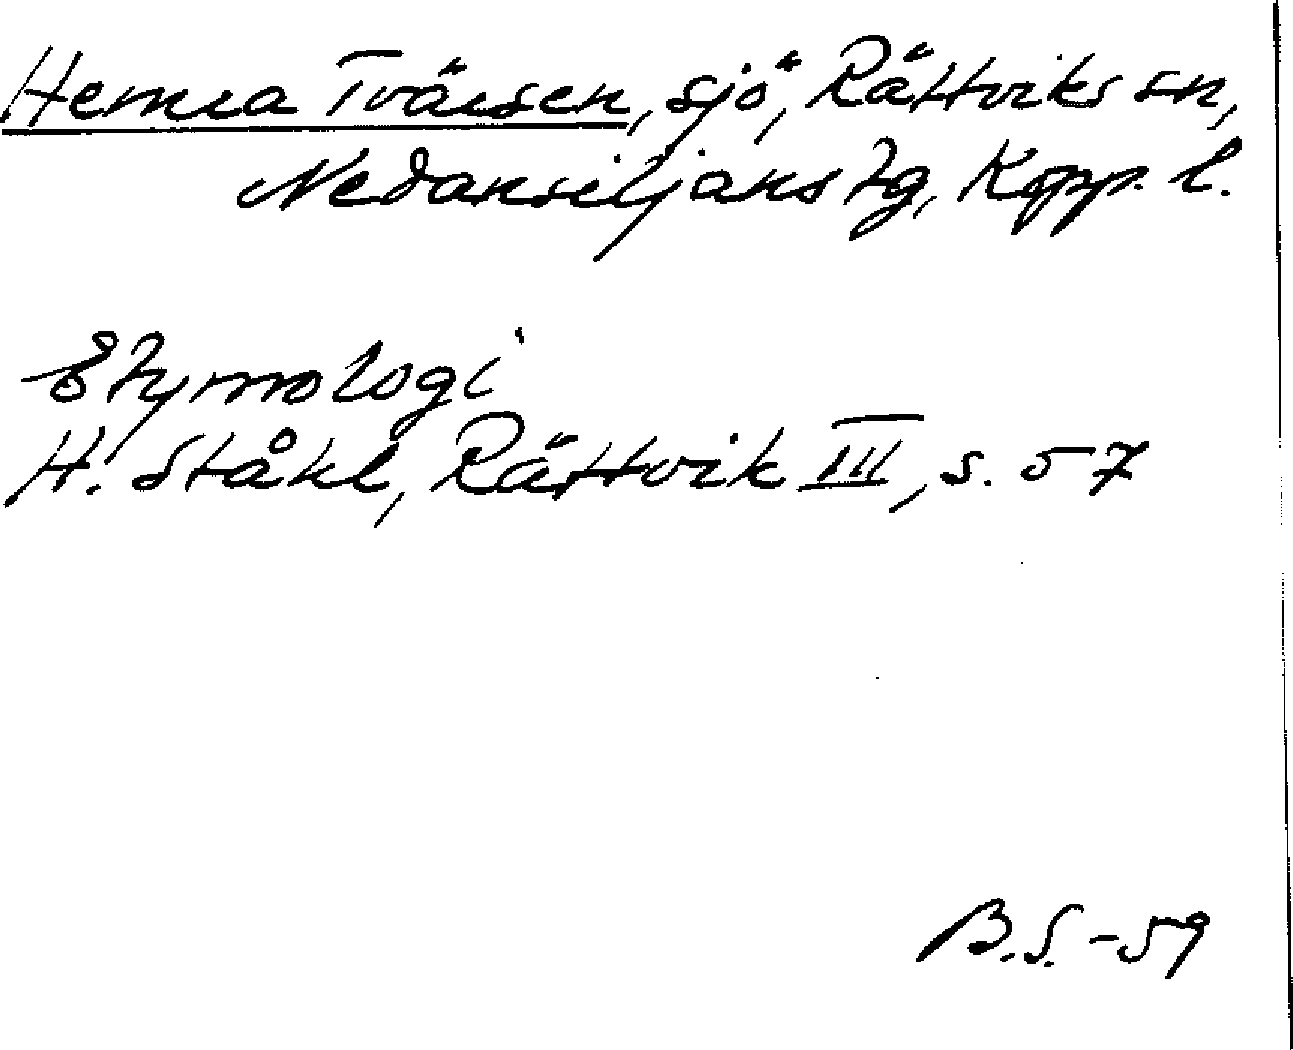 Hemra Tvärsen, sjö, Rättviks sn,
Nedansiljans tg, Kopp. l.
Etymologi
H. Ståhl, Rättvik III, s. 57
B.S. -59